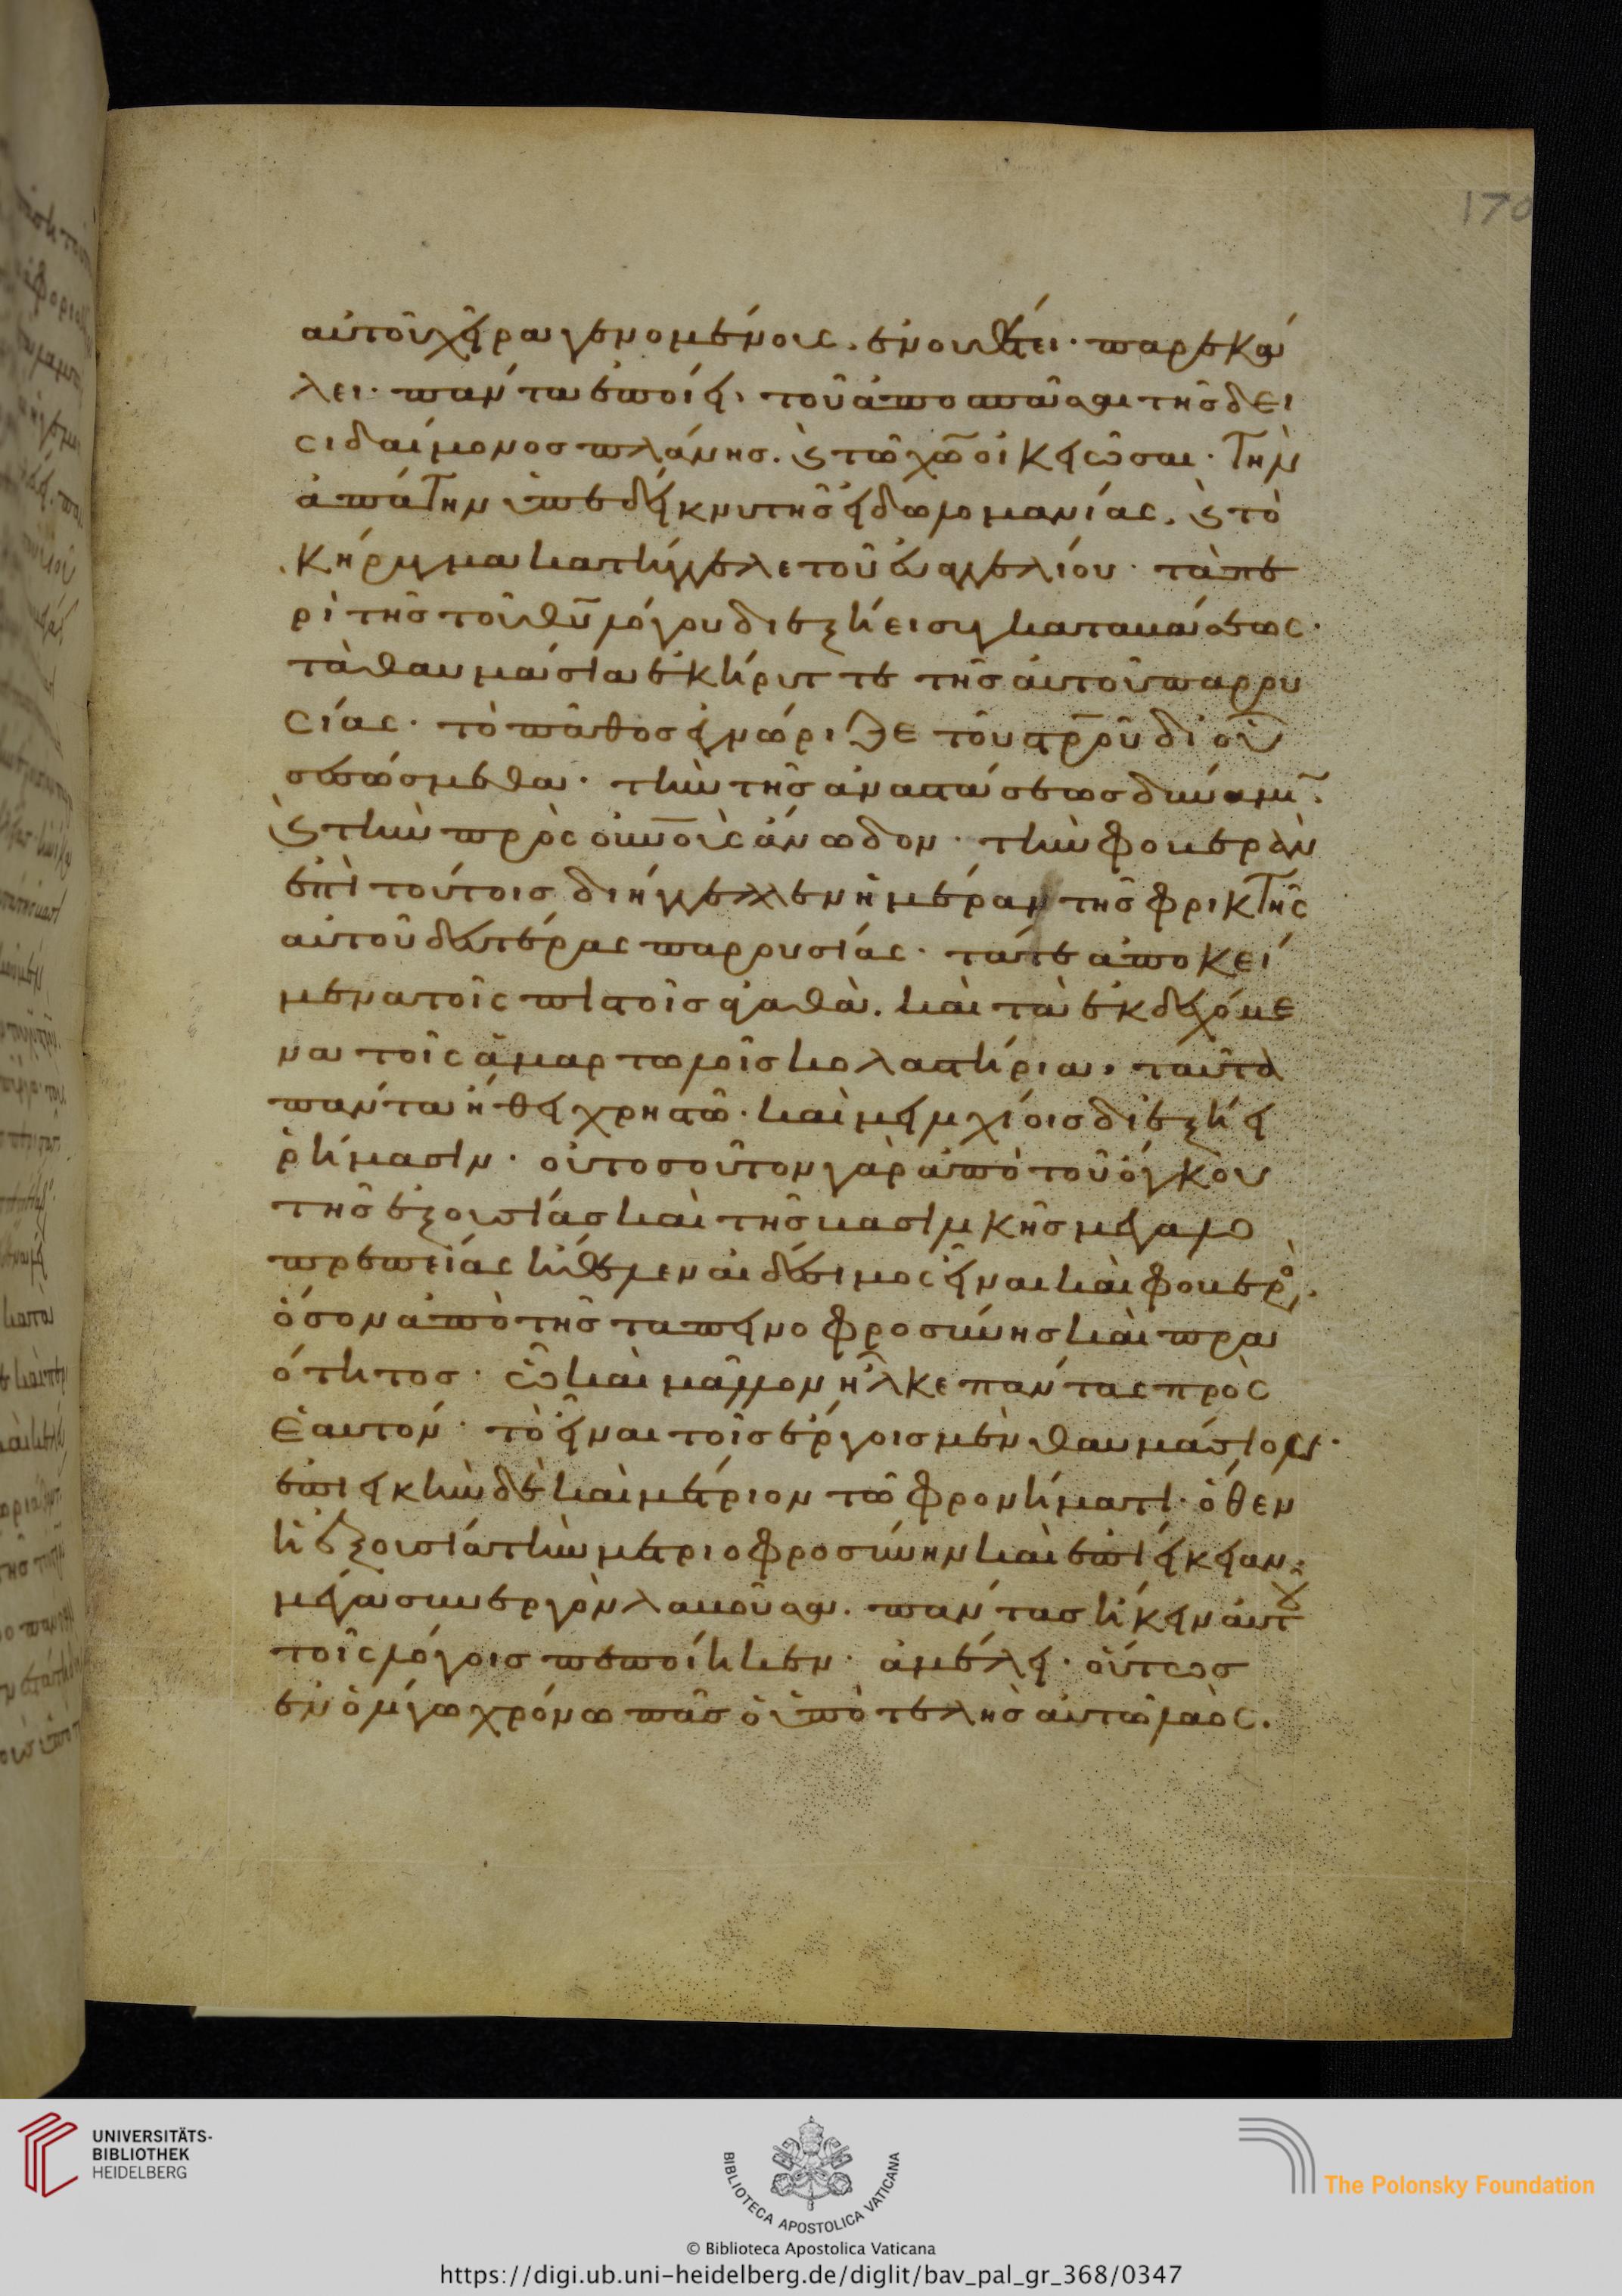 170
αὐτοῦ χεῖρα γενομένους. ἐνουθέτει· παρεκά
λει· πάντα ἐποίει, τοῦ ἀποσπᾶσαι τῆς δει
σιδαίμονος πλάνης. καὶ τῶ χ̅ω̅ οἰκειῶσαι· τὴν
ἀπάτην ὑπεδείκνυ τῆς εἰδωλομανίας. καὶ τὸ
κήρυγμα κατήγγελε τοῦ εὐαγγελίου· τὰ πε
ρὶ τῆς τοῦ θ̅υ̅ λόγου διεξήει συγκαταβάσεως·
τὰ θαυμάσια ἐκήρυττε τῆς αὐτοῦ παρου
σίας· τὸ πάθος ἐγνώριζε τοῦ σ̅ρ̅ο̅ῦ δι' οὗ
σεσώσμεθα· τὴν τῆς ἀναστάσεως δύναμι̅.
καὶ τὴν πρὸς ο̅υ̅ν̅ο̅ὺς ἄνοδον· τὴν φοβερὰν
ἐπὶ τούτοις διήγγελλεν ἡμέραν τῆς φρικτῆς
αὐτοῦ δευτέρας παρουσίας· τά τε ἀποκεί
μενα τοῖς πιστοῖς ἀγαθὰ. καὶ τὰ ἐκδεχόμε
να τοῖς ἁμαρτωλοῖς κολαστήρια, ταῦτα
πάντα ἤθει χρηστῶ· καὶ μειλιχίοις διεξήει
ῥήμασιν· οὐ τοσοῦτον γὰρ ἀπὸ τοῦ ὄγκου
τῆς ἐξουσίας καὶ τῆς βασιλικῆς μεγαλο
πρεπείας ἤθελεν αἰδέσιμος εἶναι καὶ φοβερὸς.
ὅσον ἀπὸ τῆς ταπεινοφροσύνης καὶ πρα
ότητος· ὧ καὶ μᾶλλον εἷλκε πάντας πρὸς
ἑαυτόν· τὸ εἶναι τοῖς ἔργοις μὲν θαυμάσιος·
ἐπιεικὴν δὲ καὶ μέτριον τῶ φρονήματι· ὅθεν
ἡ ἐξουσία τὴν μετριοφροσύνην καὶ ἐπιείκειαν
μεγα συνεργὸν λαβοῦσα. πάντας εἴκειν αὐτοῦ
τοῖς λόγοις πεποίηκεν· ἀμέλει· οὕτως
ἐν ὀλίγω χρόνω πᾶς ὁ ὑποτελὴς αὐτῶ λαὸς.
UNIVERSITÄTS-
BIBLIOTHEK
HEIDELBERG
BIBLIOTECA APOSTOLICA VATICANA
© Biblioteca Apostolica Vaticana
The Polonsky Foundation
https://digi.ub.uni-heidelberg.de/diglit/bav_pal_gr_368/0347